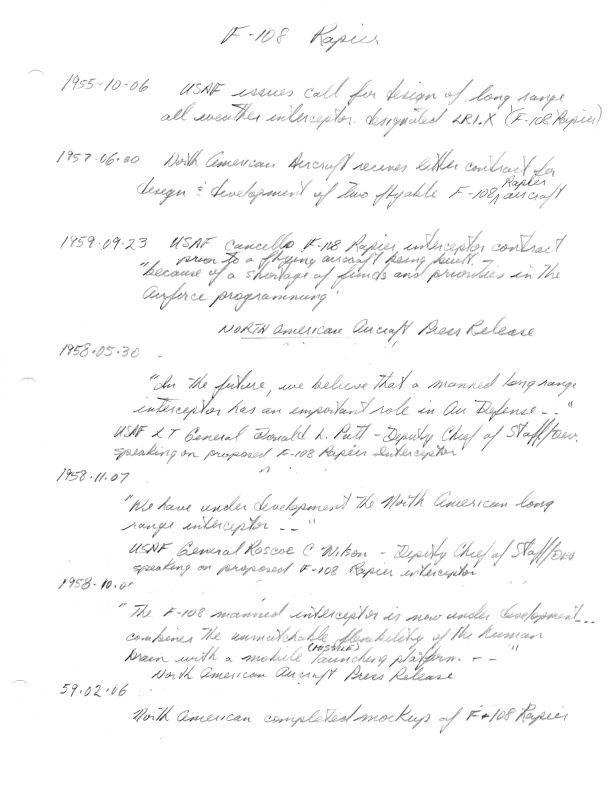 F-108 Rapier
1955-10-06 USAF issues call for design of long range
all weather interceptor designated LRI.X (F-108 Rapier)
1957.06.00 North American Aircraft receives letter contract for
design & development of two flyable F-108 Rapier aircraft
1959.09.23 USAF cancells F-108 Rapier interceptor contract
prior to a flying aircraft being built. -
"because of a shortage of funds and priorities in the
Airforce programming'
NORTH American Aircraft Press Release
1958.05.30
"In the future, we believe that a manned long range
interceptor has an important role in Air Defense - - "
USAF LT General Donald L. Putt - Deputy Chief of Staff/Dev.
speaking on proposed F-108 Rapier Interceptor
1958.11.07
"We have under development the North American long
range interceptor - - "
USAF General Roscoe C Wilson - Deputy Chief of Staff/Dev
speaking on proposed F-108 Rapier interceptor
1958-10.0
"The F-108 manned interceptor is now under development...
combines the unmatchable flexibility of the human
brain with a mobile (missile) launching platform. - - "
North American Aircraft Press Release
59.02.06
North American completed mockup of F-108 Rapier